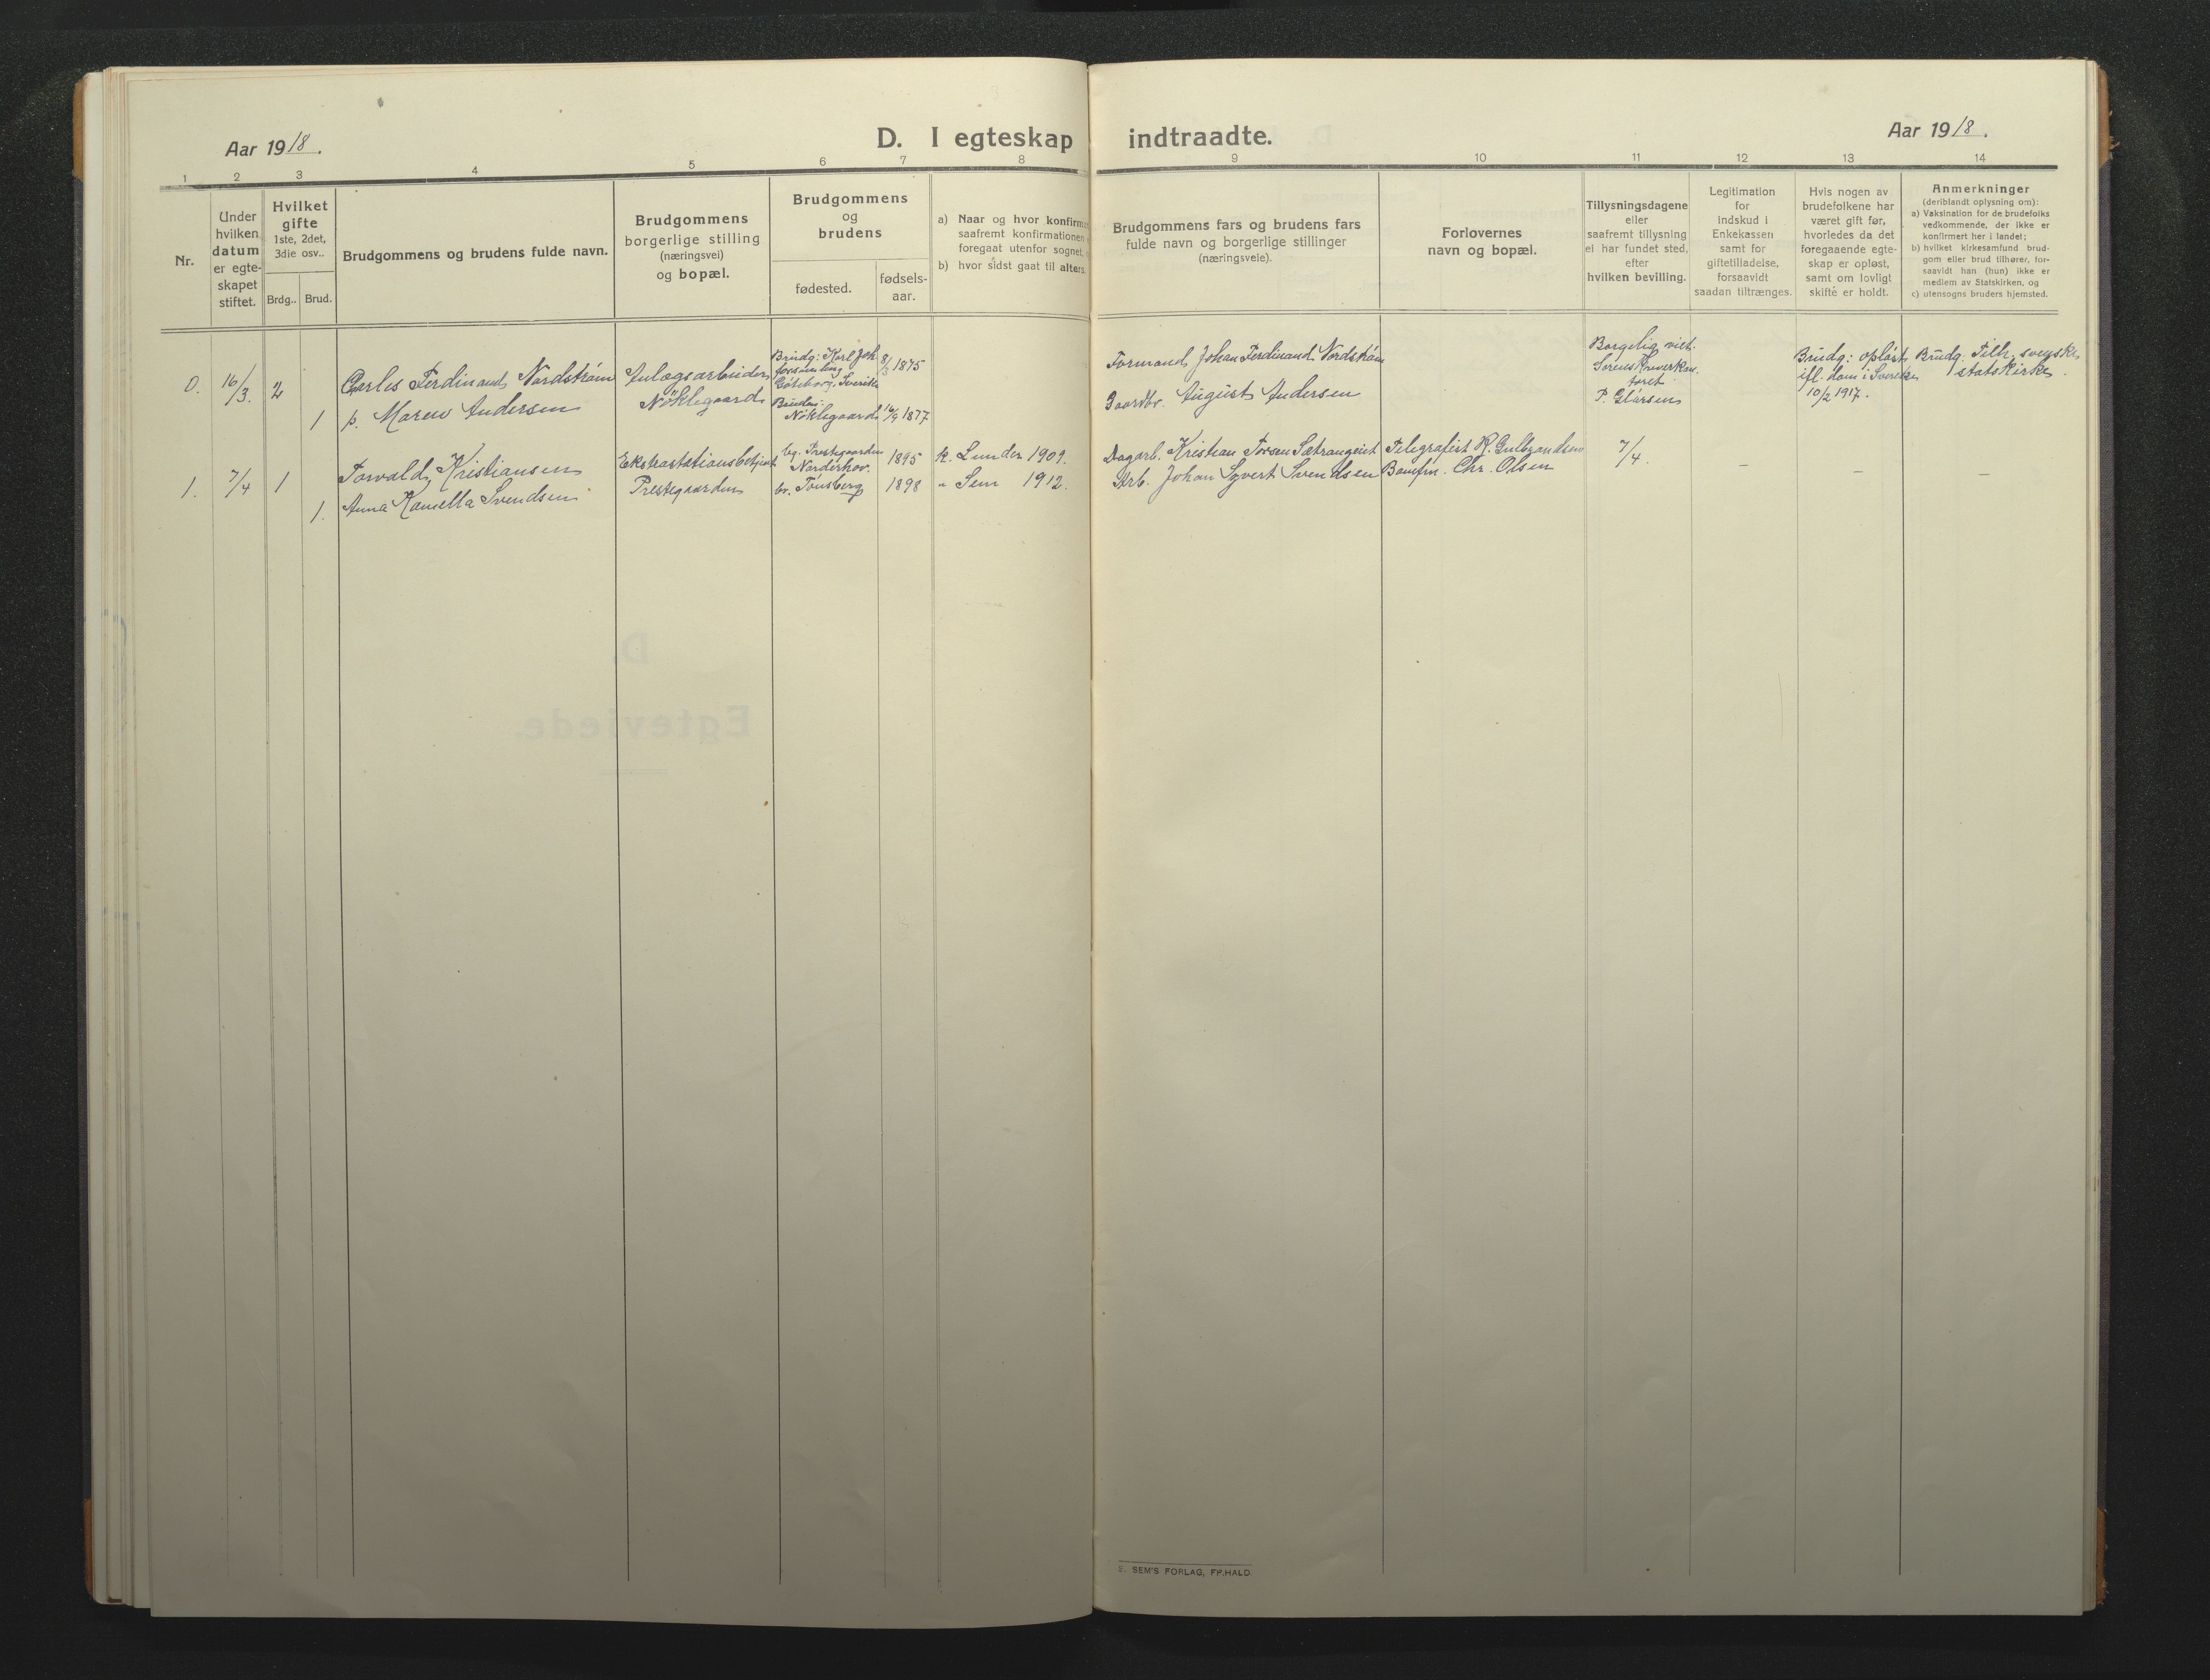 Aar 1918.
D. I egteskap indtraadte.
Aar 1918.
1 2 3 4 5 6 7 8 9 10 11 12 13 14
Nr.
Under
hvilken
datum
er egte-
skapet
stiftet.
Hvilket
gifte
1ste, 2det,
3die osv..
Brdg.. Brud.
Brudgommens og brudens fulde navn.
Brudgommens
borgerlige stilling
(næringsvei)
og bopæl.
Brudgommens
og
brudens
fødested.
fødsels-
aar.
a) Naar og hvor konfirme
saafremt konfirmationen
foregaat utenfor sognet,
b) hvor sidst gaat til alters.
Brudgommens fars og brudens fars
fulde navn og borgerlige stillinger
(næringsveie).
Forlovernes
navn og bopæl.
Tillysningsdagene
eller
saafremt tillysning
ei har fundet sted,
efter
hvilken bevilling.
Legitimation
for
indskud i
Enkekassen
samt for
giftetilladelse,
forsaavidt
saadan tiltrænges.
Hvis nogen av
brudefolkene har
været gift før,
hvorledes da det
foregaaende egte-
skap er opløst,
samt om lovligt
skifte er holdt.
Anmerkninger
(deriblandt oplysning om):
a) Vaksination for de brudefolks
vedkommende, der ikke er
konfirmert her i landet;
b) hvilket kirkesamfund brud-
gom eller brud tilhører, for-
saavidt han (hun) ikke er
medlem av Statskirken, og
c) utensogns bruders hjemsted.
0. 16/3. 2
Carles Ferdinand Nordstrøm
1 p. Maren Andersen
Anlægsarbeider
Nøklegaard
Brudg: Karl Joh.
forsamling
Gøteborg, Sverike
8/3 1875
Bruden:
Nøklegaard 16/9 1877
Formand Johan Ferdinand Nordstrøm
Gaardbr. August Andersen
Borgelig viet.
P. Glarsen
Brudg: opløst
ifl. dom i Sverike
10/2 1917.
Brudg. Tilh. svenske
statskirke.
1. 7/4 1
Torvald, Kristiansen
1. Anna Kamella Svendsen
Ekstrastationsbetjent
Prestegaarden
bg. Prestegaarden
Norderhov. 1895
br. Tønsberg 1898
k. Lunder 1909.
" Sem 1912.
Dagarb. Kristian Torsen Sætrangeiet
Arb. Johan Syvert Svendsen
Telegrafist K. Gulbrandsen
Banefm. Chr. Olsen
7/4.
– – –
D.
Egteviede.
E. SEM'S FORLAG, FR.HALD